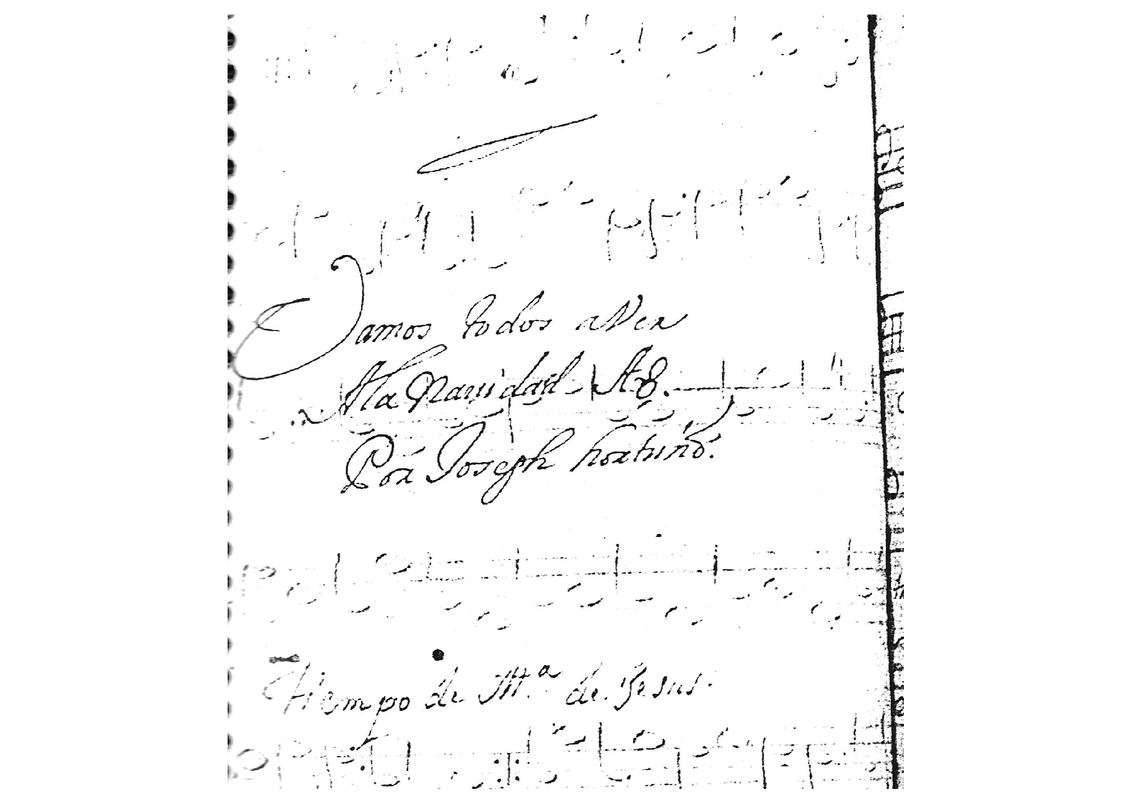 Vamos todos aVer
Ala Navidad A8.
Por Joseph hortuño.
Tiempo de Mᵃ de Jesus.